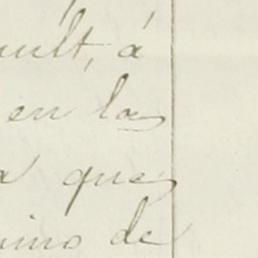 ault, á
en la
a que
ino de